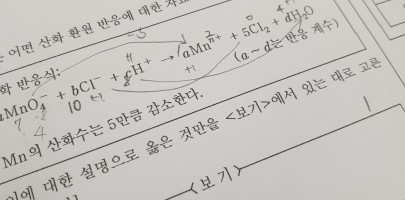 는 어떤 산화 환원 반응에 대한 자료
학 반응식:
aMnO₄⁻ + bCl⁻ + cH⁺ → aMnⁿ⁺ + 5Cl₂ + dH₂O
(a ~ d는 반응 계수)
Mn의 산화수는 5만큼 감소한다.
이에 대한 설명으로 옳은 것만을 <보기>에서 있는 대로 고른
<보 기>